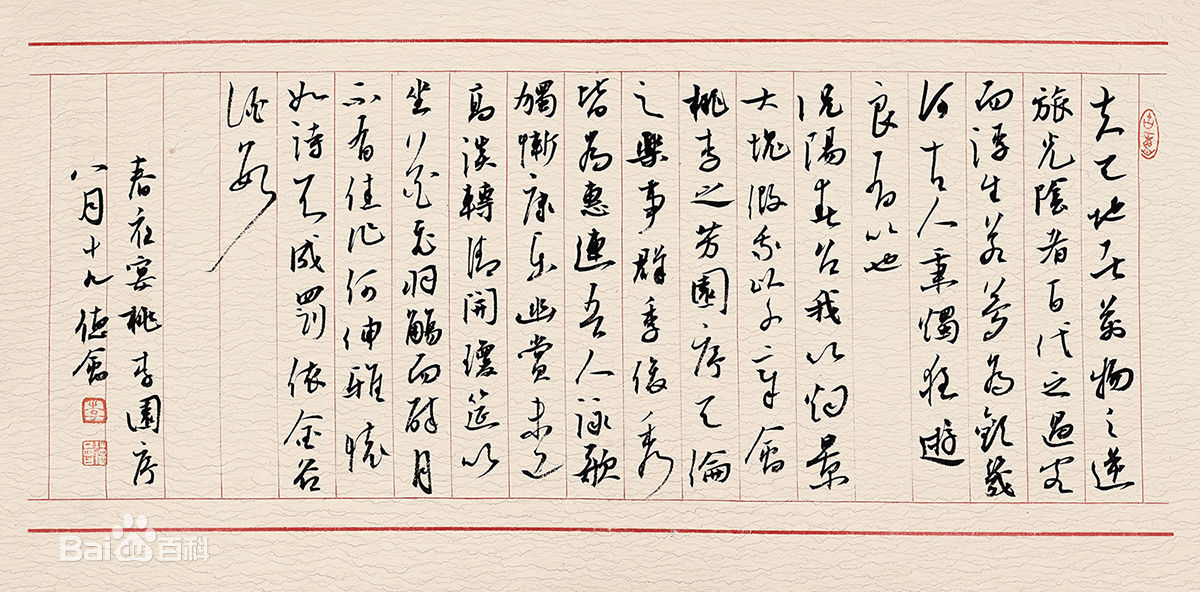 夫天地者萬物之逆
旅光陰者百代之過客
而浮生若夢為歡幾
何古人秉燭夜遊
良有以也
況陽春召我以烟景
大塊假我以文章會
桃李之芳園序天倫
之樂事群季俊秀
皆為惠連吾人詠歌
獨慚康樂幽賞未已
高談轉清開瓊筵以
坐花飛羽觴而醉月
不有佳作何伸雅懷
如詩不成罰依金谷
酒數
春夜宴桃李園序
八月十九 德會
Bai 百科